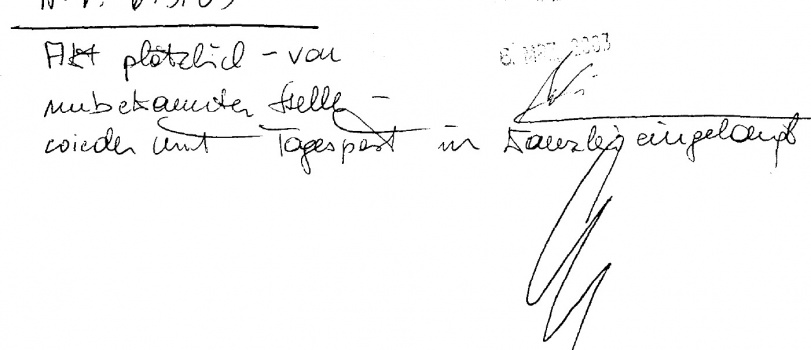 Akt plötzlich – von
6. MRZ. 2003
unbekannter Stelle –
wieder mit Tagespost in Kanzlei eingelangt